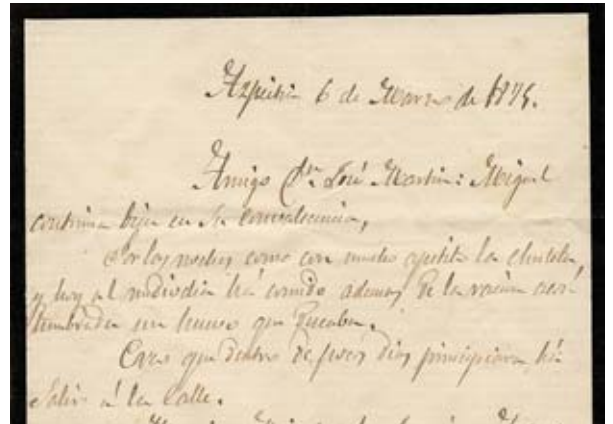 Azpeitia 6 de Marzo de 1875.
Amigo Dn. José Martin: Miguel
continua bien en su convalecencia,
Por las noches come con mucho apetito la chuleta,
y hoy al mediodia há comido ademas de la racion acos
tumbrada un huevo que
Creo que dentro de pocos dias principiara há
salir á la Calle.